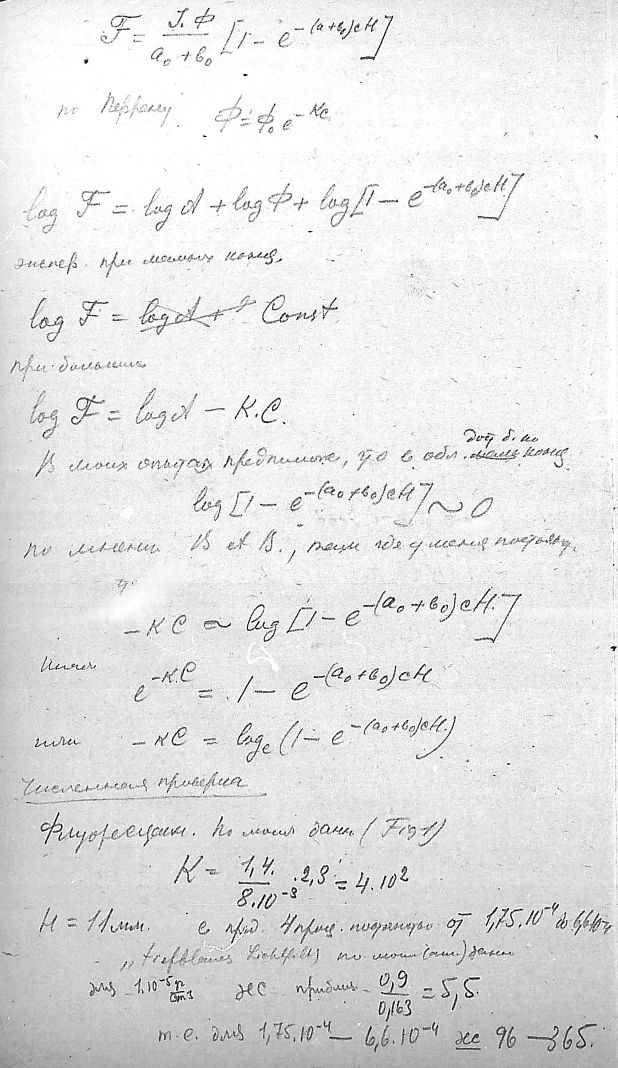 F = J.Ф / a₀+b₀ [1 - e^-(a+b₀)cH]
по Перрену Ф = Ф₀ e^-Kc
log F = log A + log Ф + log [1 - e^-(a₀+b₀)cH]
экспер. при малых конц.
log F = log A + Const
при больших
log F = log A - K.C.
В моих опытах предположе, что в обл. мал. конц
log [1 - e^-(a₀+b₀)cH] ~ 0
по мнению В и В., там где у меня постоян.
-KC ≈ log [1 - e^-(a₀+b₀)cH.]
Иначе
e^-K.C = 1 - e^-(a₀+b₀)cH
или -KC = logₑ (1 - e^-(a₀+b₀)cH.)
Численная проверка
Флуоресцеин. По моим данн (Fig 1)
K = 1,4. / 8.10⁻³ . 2,3 = 4.10²
H = 11 мм. с пред. 4 проц. от 1,75.10⁻⁴ до 6,6.10⁻⁴
"tiefblaues Lichtfilt) по моим данн
для 1.10⁻⁵ г/cm³ приближ. 0,9 / 0,163 = 5,5.
т.е. для 1,75.10⁻⁴ — 6,6.10⁻⁴ 96 — 365.